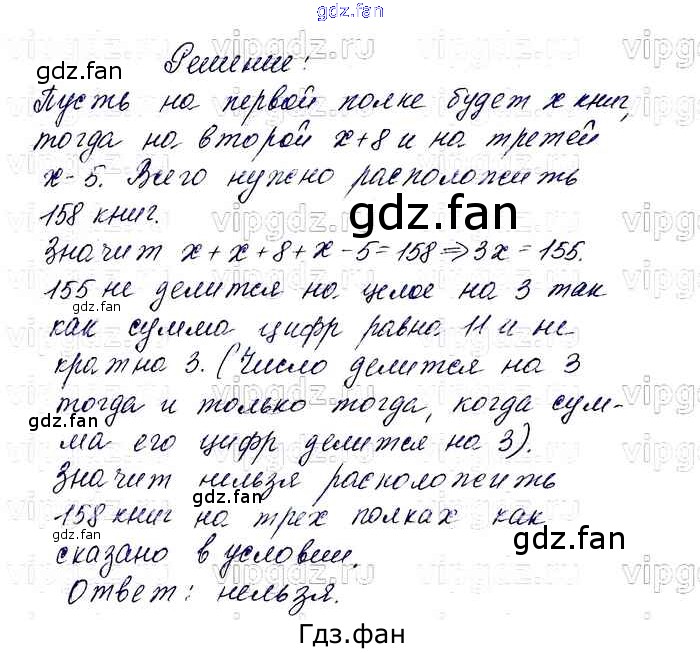 gdz.fan
Решение:
Пусть на первой полке будет x книг,
тогда на второй x+8 и на третей
x-5. Всего нужно расположить
158 книг.
Значит x+x+8+x-5=158⇒3x=155.
155 не делится на целое на 3 так
как сумма цифр равна 11 и не
кратна 3. (Число делится на 3
тогда и только тогда, когда сум-
ма его цифр делится на 3).
Значит нельзя расположить
158 книг на трех полках как
сказано в условии.
Ответ: нельзя.
gdz.fan
gdz.fan
gdz.fan
gdz.fan
gdz.fan
gdz.fan
gdz.fan
Гдз.фан